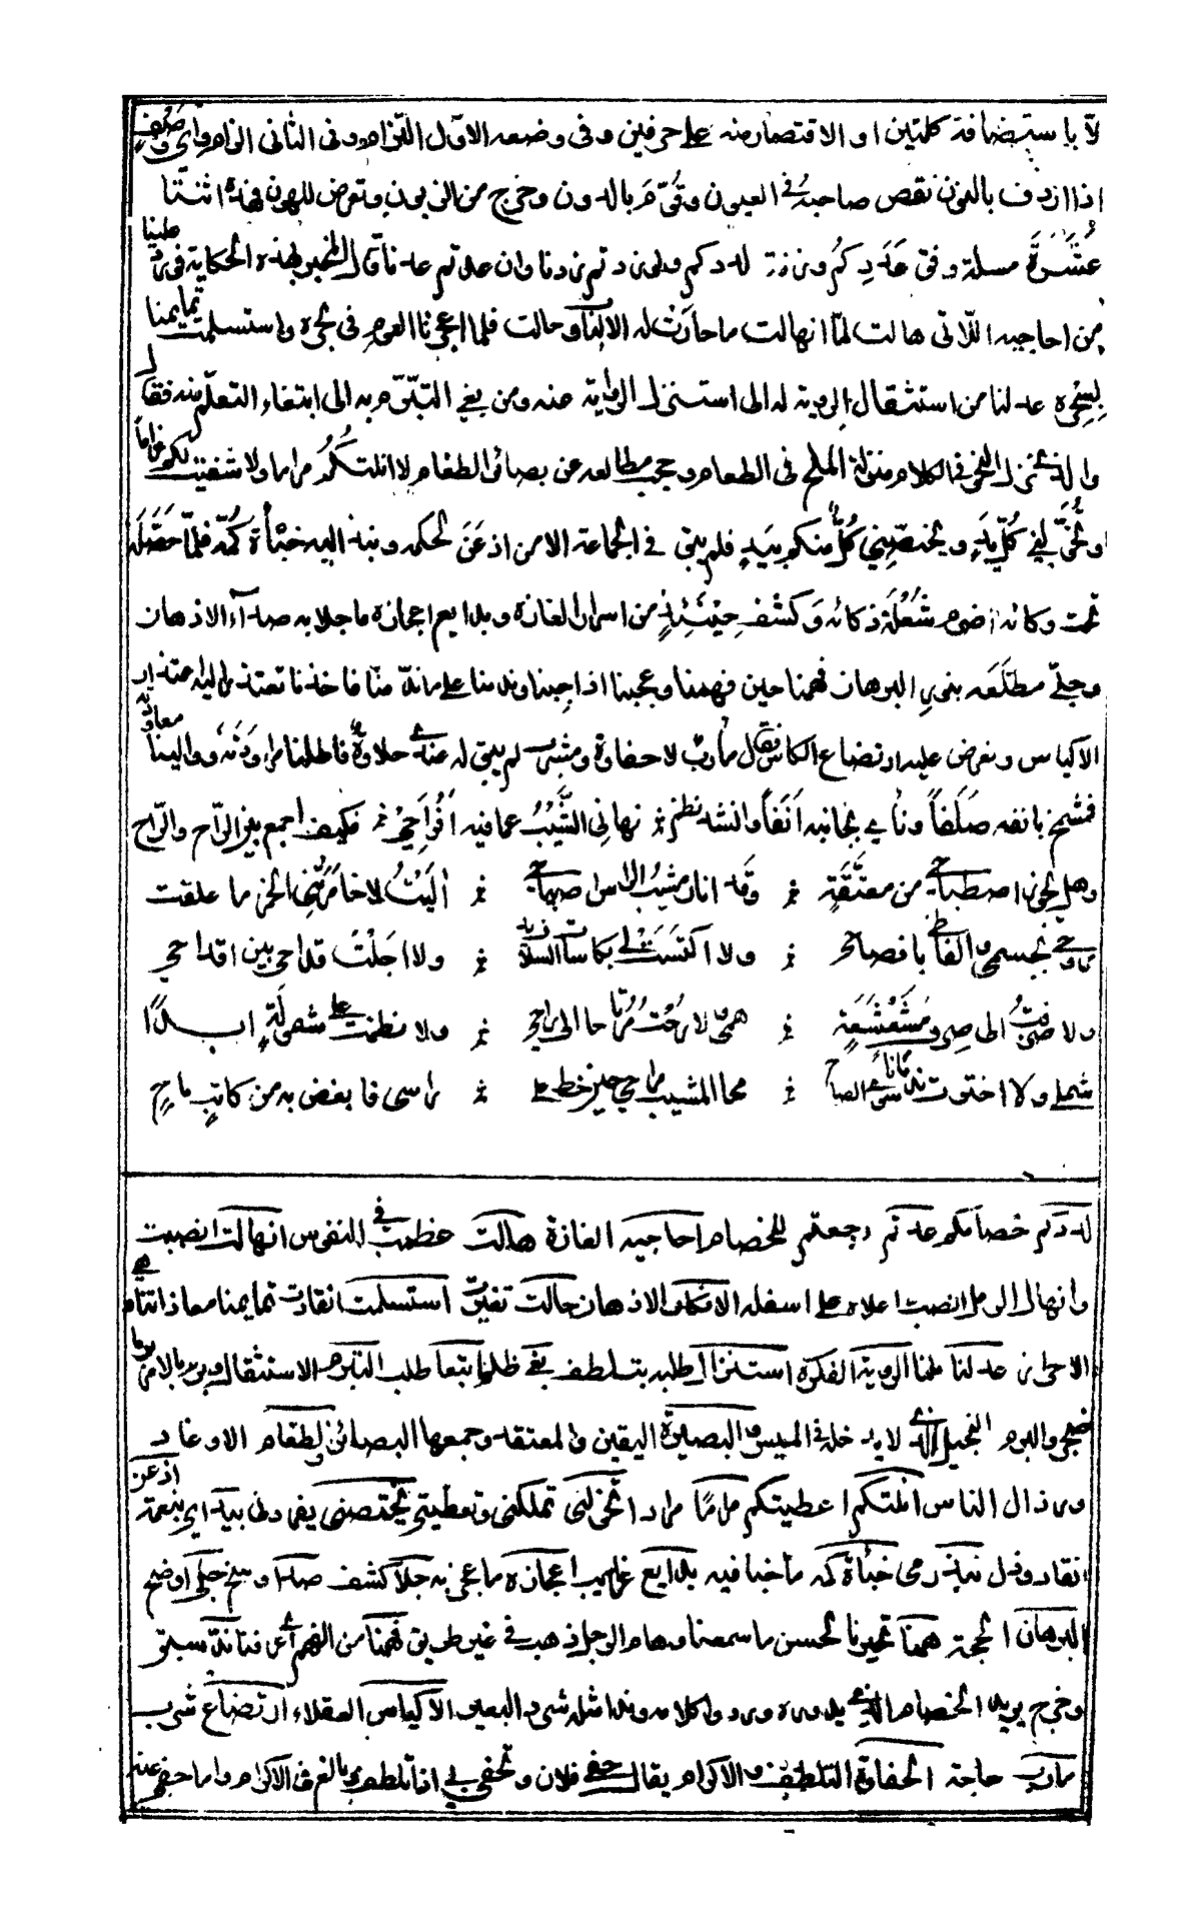 لا باستضافة كلمتين او الاقتصار منه على حرفين وفى وضعه الاول التزام وفى الثانى الزام واى وصف
اذا اردف بالنون نقص صاحبه فى العيون وقوم بالدون وخرج من الزبون وتعرض للهون فهذه اثنتا
عَشْرَةَ مسئلة وفق عَدَدِكُم وزنة لددكم ولو زدتم زدنا وان عدتم عدنا قال المخبر بهذه الحكاية فورد علينا
من احاجيه اللاتى هالت لمّا انهالت ما حارت له الافكار وحالت فلما اعجزنا العوم فى بحره واستسلمت تمايمنا
لِسِحْرِه عدلنا من استثقال الروية له الى استنزال الرواية عنه ومن بغى التبرّم به الى ابتغاء التعلّم منه فقال
والذى نزل النحو فى الكلام منزلة الملح فى الطعام وحجب مطالعه عن بصائر الطغام لا انلتكم مراما ولا شفيت لكم غراما
او تُخَوِّلَنى كُلُّ يدٍ ويختصّني كُلٌّ منكم بيدٍ فلم يبق فى الجماعة الا من اذعَنَ لحكمه ونبذ اليه خُبْأَةَ كُمّه فلمّا حَصَّلَه
تحت وكائه اضرم شُعْلَةَ ذكائه وَكشف حِينَئِذٍ من اسرار الغازه وبدايع اعجازه ما جلا به صداء الاذهان
وجلّى مطلَعَه بنور البرهان فهمنا حين فهمنا وعجبنا اذ اجبنا وندمنا على ما ندّ منّا فاخذنا نعتذر اليه اعتذار
الاكياس ونعرض عليه ارتضاع الكاس فقال مأربٌ لا حفاوة ومشرب لم يبق له عندى حلاوةٌ فاطلنا مراودَتَه ووالينا معاودته
فشمخ بانفه صَلَفًا ونأى بجانبه اَنَفًا وانشد نظم نهانِى الشَّيْبُ عما فيه اَفْرَاحِى فكيف اجمع بين الرّاح والرّاح
وهل يجوز اصطباحى من معتَّقَةٍ وقد انار مشيبُ الراس اصباحى اٰلَيتُ لا خامَرَتْنى الخمر ما علقت
روحى بجسمى والفاظى بافصاحى ولا اكتسَت لى بكاسات السلاف يد ولا اجَلْتُ قداحى بين اقداحى
ولا صرفتُ الى صِرفٍ مُشَعْشَعَةٍ همى ولا رُحْتُ مُرتاحا الى راحى ولا نظمتُ على مشمولَةٍ ابدًا
شملى ولا اخترت ندمانًا سوى الصاحى محا المشيب مراحى حين خط على راسى فابغض به من كاتبٍ ماحٍ
لددكم خصامكم عدتم رجعتم للخصام احاجيه الغازه هالت عظمت فى النفوس انهالت انصبت
وانهال الرمل انصب اعلاه على اسفله الافكار الاذهان حالت تغيرت استسلمت انقادت تمايمنا معاذاتنا هى
الاحراز عدلنا ملنا الروية الفكرة استنزال طلبه بتلطف بغى ظلم ابتغا طلب التبرم الاستثقال وبرم بالامر برما
ضجر والبرم البخيل الذى لا يدخل فى الميسر البصيرة اليقين والمعتقد وجمعها البصائر لطغام الاوغاد
ورذال الناس انلتكم اعطيتكم مراما مراد تخولنى تملكنى وتعطينى يختصنى يفردنى بيد اى بنعمة اذعن
انقاد وذل نبذ رمى خبأة كمه ما خبا فيه بدايع غرايب اعجازه ما عجز به جلا كشف صداء وسخ جلى اوضح
البرهان الحجة همنا تحيرنا لحسن ما سمعنا وهام الرجل ذهب فى غير طريق فهمنا من الفهم اى عرفنا ند سبق
وخرج يريد الخصام الذى بدر وورود الكلام وند اشد شرود البعير الاكياس العقلاء ارتضاع شرب
مارب حاجة الحفاوة التلطف والاكرام يقال حفى فلان وتحفى بى اذا تلطف وبالغ فى الاكرام واما حفى عنه